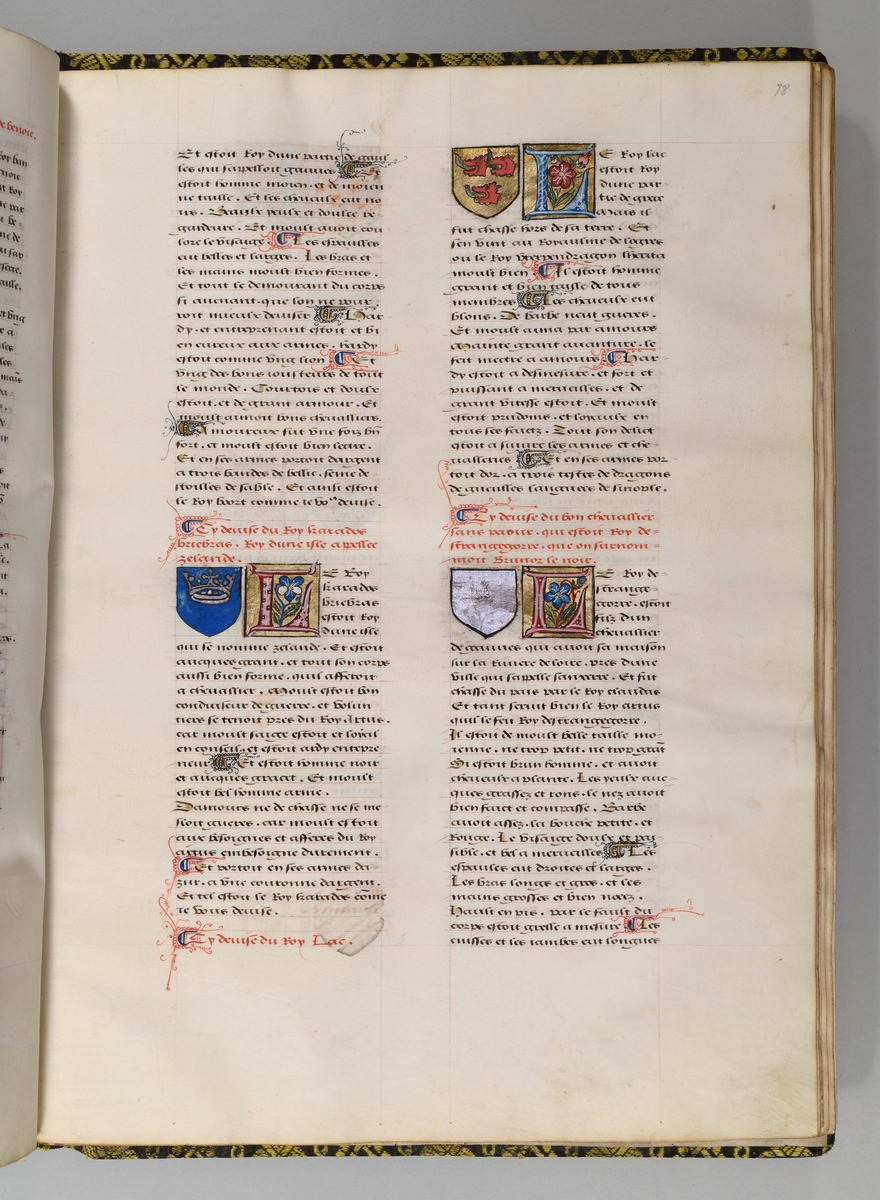 78
Et estoit Roy dune partie de gaul
les qui sappelloit gauues Et
estoit homme moien. et de moien
ne taille. Et les cheueulx eut no
irs. Beaulx yeulx et doulce re
gardeure. Et moult auoit cou
loré le visaige. Les espaulles
eut belles et larges. Les bras et
les mains moult bien formes.
Et tout le demourant du corps
si auenant. que lon ne pour
roit mieulx deuiser Har
dy. et entreprenant estoit et bi
en eureux aux armes. hardy
estoit comme vng lyon Et
vng des bons iousteurs de tout
le monde. Courtois et doulx
estoit. et de grant amour. Et
moult aimoit bons cheualliers.
Amoureux fut vne foiz bñ
fort. et moult estoit bien
Et en ses armes portoit dargent
a trois bandes de bellic. seme de
stoilles de sable. Et ainsi estoit
le Roy boort comme ie vous deuise.
Cy deuise du Roy karados
briebras. Roy dune isle appellee
zelande.
LE Roy
karados
briebras
estoit Roy
dune isle
qui se nomme zelande. Et estoit
aucques grant. et tout son corps
aussi bien forme. quil afferoit
a cheuallier. Moult estoit bon
conduiseur de guerre. et volun
tiers se tenoit pres du Roy Artus.
car moult saige estoit et loyal
en conseil. et estoit ardy entrepre
neur Et estoit homme noir
et aucques gracet. Et moult
estoit bel homme arme.
Damours ne de chasse ne se me
sloit gueres. car moult estoit
aux besoignes et afferes du Roy
artus embesoigne durement.
Et portoit en ses armes da
zur. a vne couronne dargent.
Et tel estoit le Roy karados cõme
ie vous deuise.
Cy deuise du Roy Lac.
LE Roy lac
estoit Roy
dune par
tie de grece
Mais il
fut chasse hors de sa terre. Et
sen vint au Royaulme de logres
ou le Roy vterpendragon lherita
moult bien Il estoit homme
grant et bien taille de tous
membres Les cheueulx eut
blons. De barbe neut gueres.
Et moult ama par amours
Mainte grant auanture. se
feit mectre a amours Har
dy estoit a desmesure. et fort et
puissant a merueilles. et de
grant vitesse estoit. Et moult
estoit prudoms. et loyaulx en
tous ses faictz. Tout son delict
estoit a suiure les armes et che
ualleries Et en ses armes por
toit dor. a trois testes de dragons
de gueulles langueez de sinople.
Cy deuise du bon cheuallier
sans paour. qui estoit Roy de-
strangegorre. que on surnom-
moit Brunor le noir.
LE Roy de-
strange-
gorre. estoit
filz dun
cheuallier
de gauues qui auoit sa maison
sur la Riuiere de loire. pres dune
ville qui sappelle sanxerre. Et fut
chasse du pais par le Roy claudas
Et tant seruit bien le Roy artus
quil le feit Roy destrangegorre.
Il estoit de moult belle taille mo-
ienne. ne trop petit. ne trop grãt
Si estoit brun homme. et auoit
cheueulx a plante. Les yeulx auc-
ques grassez et rons. le nez auoit
bien faict et compasse. Barbe
auoit assez. la bouche petite. et
Rouge. Le visaige doulx et pai
sible. et bel a merueilles Les
espaules eut droites et larges.
Les bras longs et gros. et les
mains grosses et bien
Hault en pis. par le fault du
corps estoit gresle a mesure Les
cuisses et les iambes eut longues